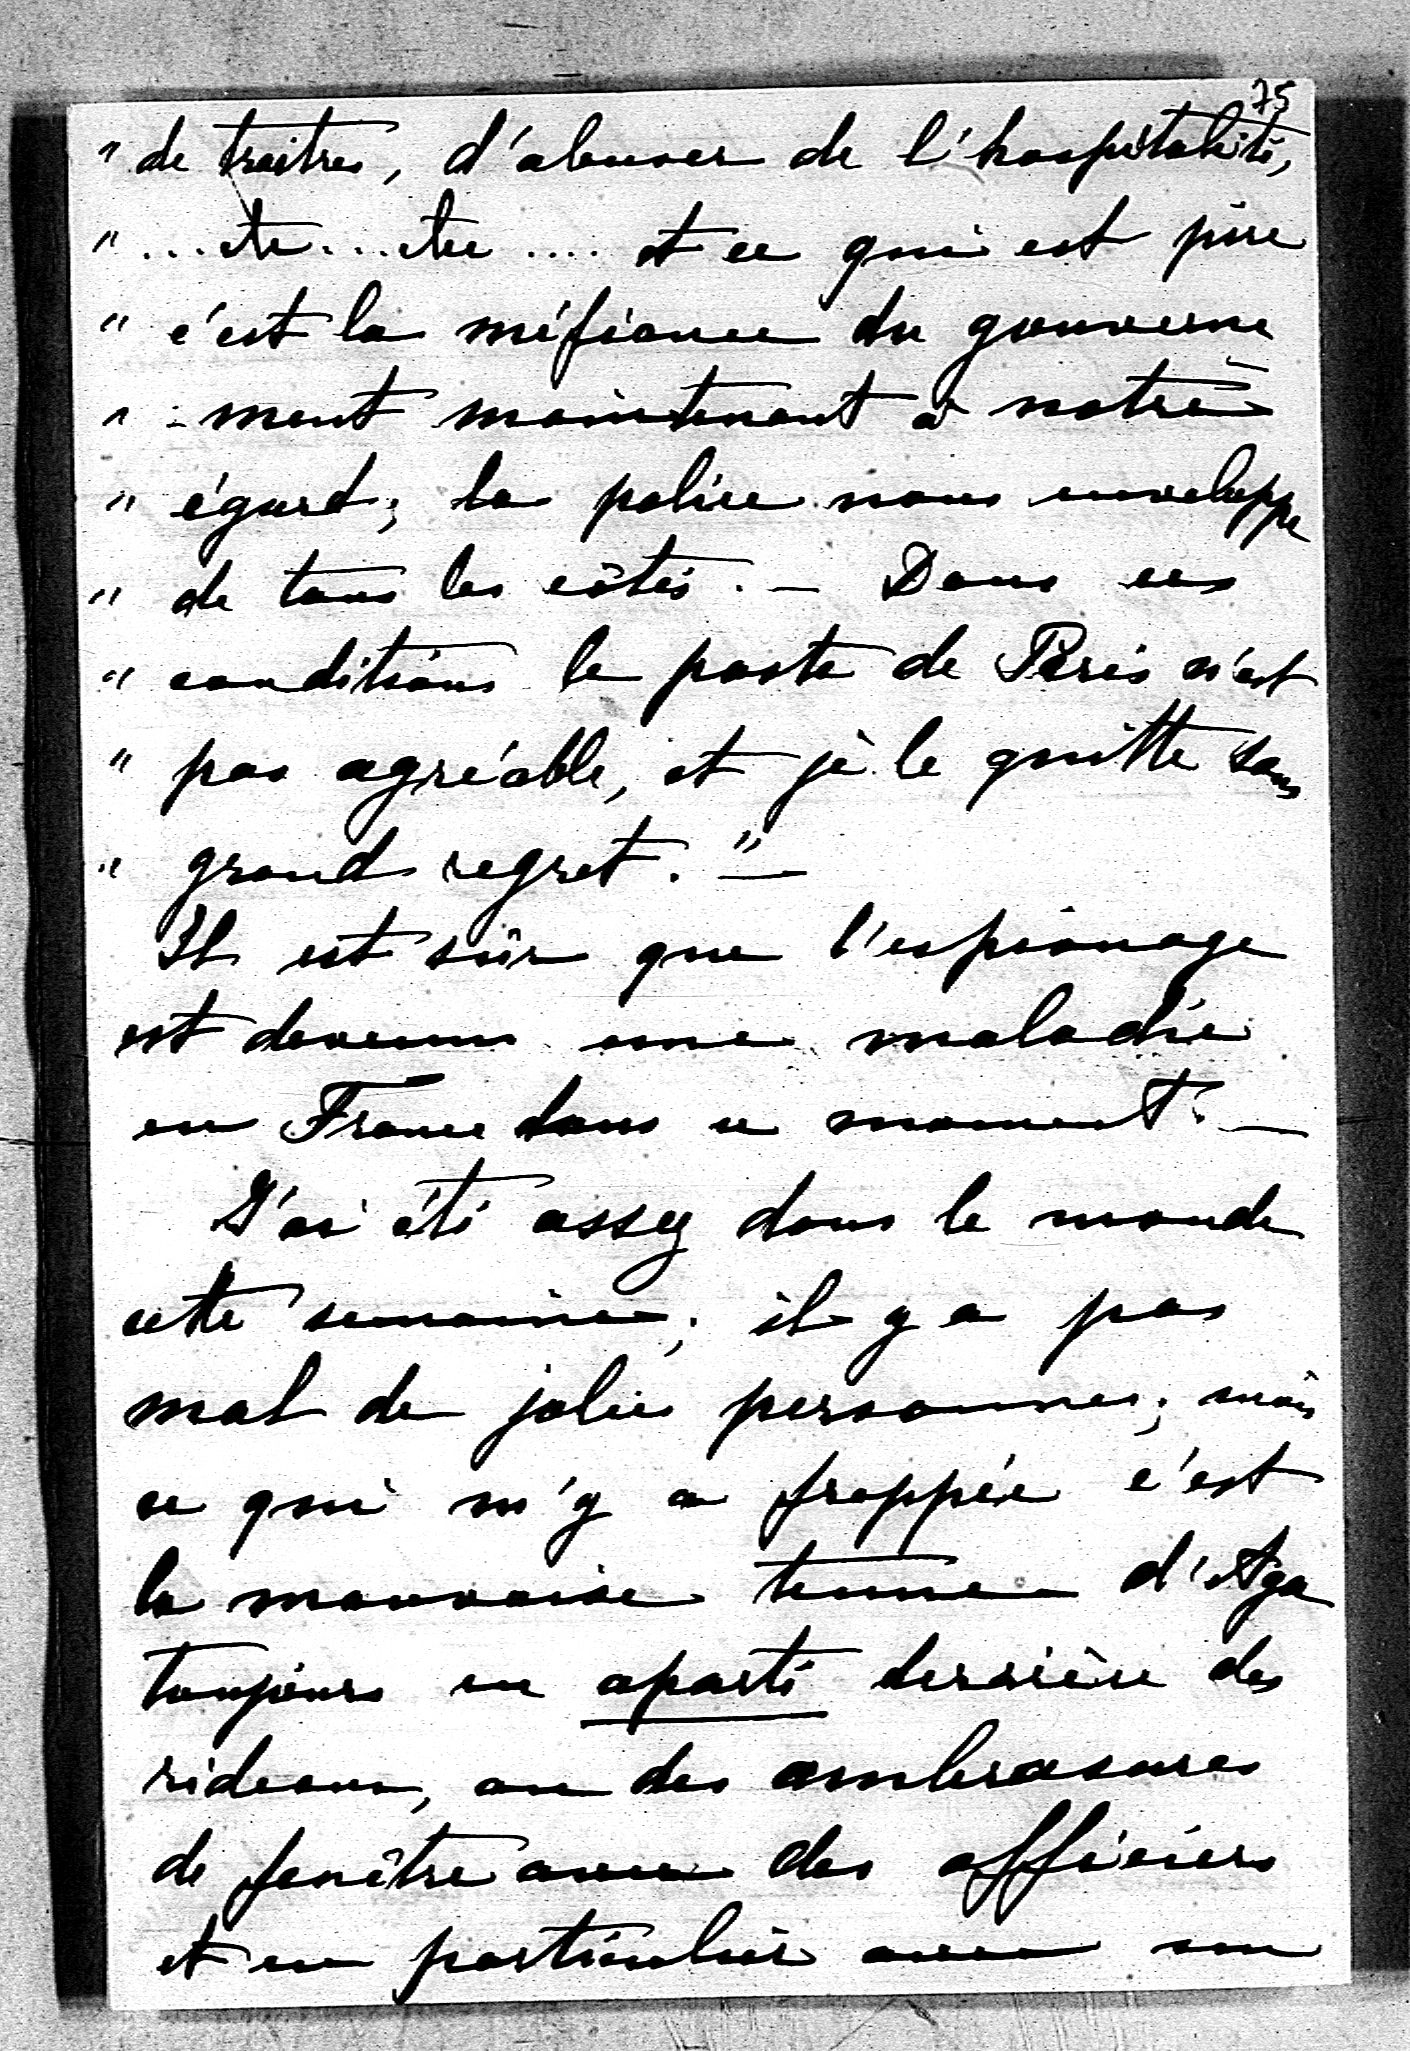 75
" de traitres, d'abuser de l'hospitalité,
" ...etc...etc.... et ce qui est pire
" c'est la méfiance du gouverne
" - ment maintenant à notre
" égard; la police nous enveloppe
" de tous les côtés. — Dans ces
" conditions le poste de Paris n'est
" pas agréable, et je le quitte sans
" grand regret." —
Il est sûr que l'espionage
est devenu une maladie
en France dans ce moment. —
J'ai été assez dans le monde
cette semaine; il y a pas
mal de jolies personnes; mais
ce qui m'y a frappée c'est
la mauvaise tenue d'Aga
toujours en aparté derrière des
rideaux, ou des ambrasures
de fenêtre avec des officiers
et en particulier avec un